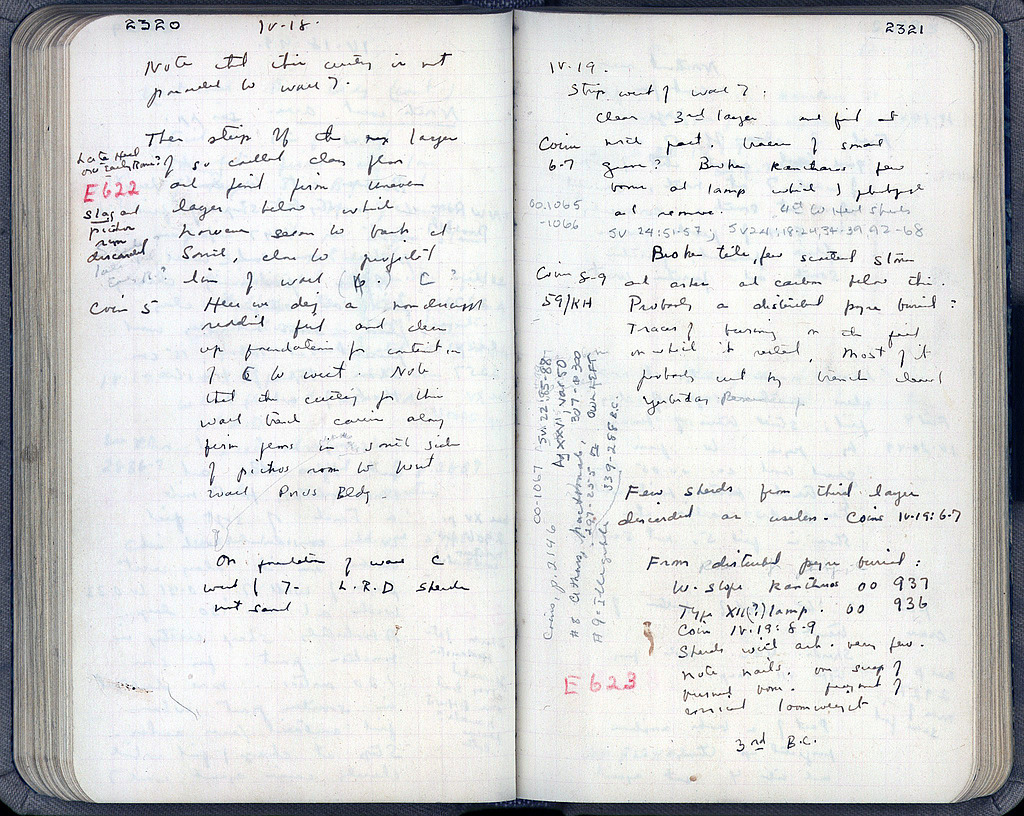 2320 IV-18.
Note that this cutting is not
parallel to wall 7.
Then strip off the next layer
Late Hell
or Early Rom?
of so called clay floor
E 622
and find firm uneven
slag and
layer below which
pithos
room
however seems to bank at
discarded
South, close to projected
line of wall C?
Coin 5
Here we dig a nondescript
reddish fill and clean
up foundation for continuation
of C to west. Note
that the cutting for this
wall trench comes along
firm in south side
of pithos room to West
wall Poros Bldg.
On foundation of wall C
west of 7. L.R.D sherds
not saved
2321
IV.19.
Strip west of wall 7.
Clear 3rd layer and find at
Coin
north part. traces of small
6-7
grave? Broken Kantharos few
bones and lamp which I photograph
OO.1065
-1066
and remove. 4th C Hell Sherds
JV 24:51-57; JV24:18-24,34-39,92-68
Broken tile, few scattered stones
Coin 8-9
and ashes and carbon below this.
59/KH
Probably a disturbed pyre burial:
Traces of burning on the fill
on which it rested. Most of it
probably cut by trench cleared
yesterday
Few sherds from third layer
discarded as useless. Coins IV-19:6-7
From disturbed pyre burial:
W. slope Kantharos OO 937
Type XII(?) lamp. OO 936
Coin IV.19:8-9
Sherds with ash. very few.
note nails, one scrap of
E 623
burned bone. fragment of
conical loomweight
3rd B.C.
Coins, p. 2146 OO-1067 JV.22:85-88
#8 Athens, fractional, 307-300
Ag XXVI, Var 50
#9: Illegible
339-288 B.C.